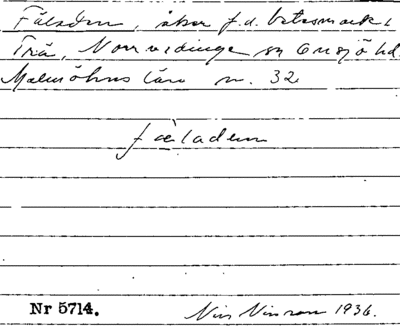 Fäladen, åker f.d. betesmark i
Trä, Norrvidinge sn Onsjö hd
Malmöhus län n. 32
fæladen
Nr 5714. Nils Nilsson 1936.